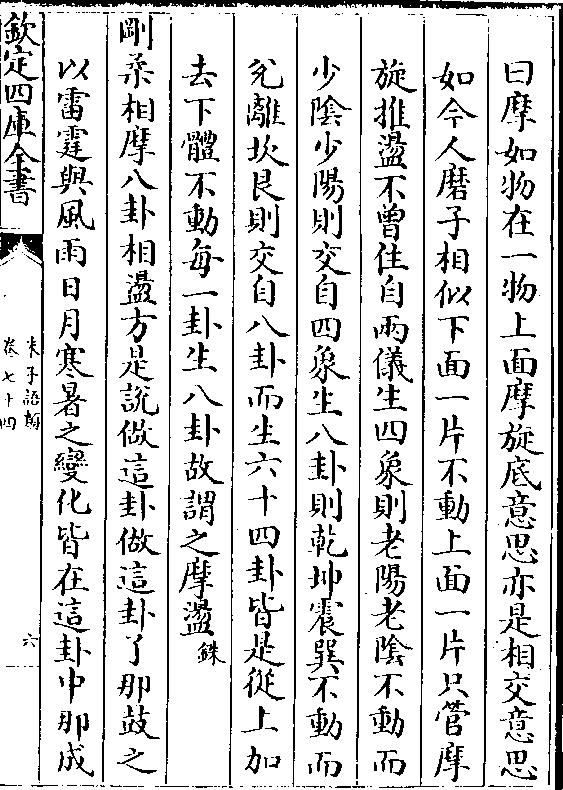 曰摩如物在一物上面摩旋底意思亦是相交意思
如今人磨子相似下面一片不動上面一片只管摩
旋推盪不曾住自兩儀生四象則老陽老陰不動而
少陰少陽則交自四象生八卦則乾坤震巽不動而
兊離坎艮則交自八卦而生六十四卦皆是從上加
去下體不動每一卦生八卦故謂之摩盪銖
剛柔相摩八卦相盪方是説做這卦做這卦了那鼓之
以雷霆與風雨日月寒暑之變化皆在這卦中那成
欽定四庫全書
朱子語類
卷七十四
六